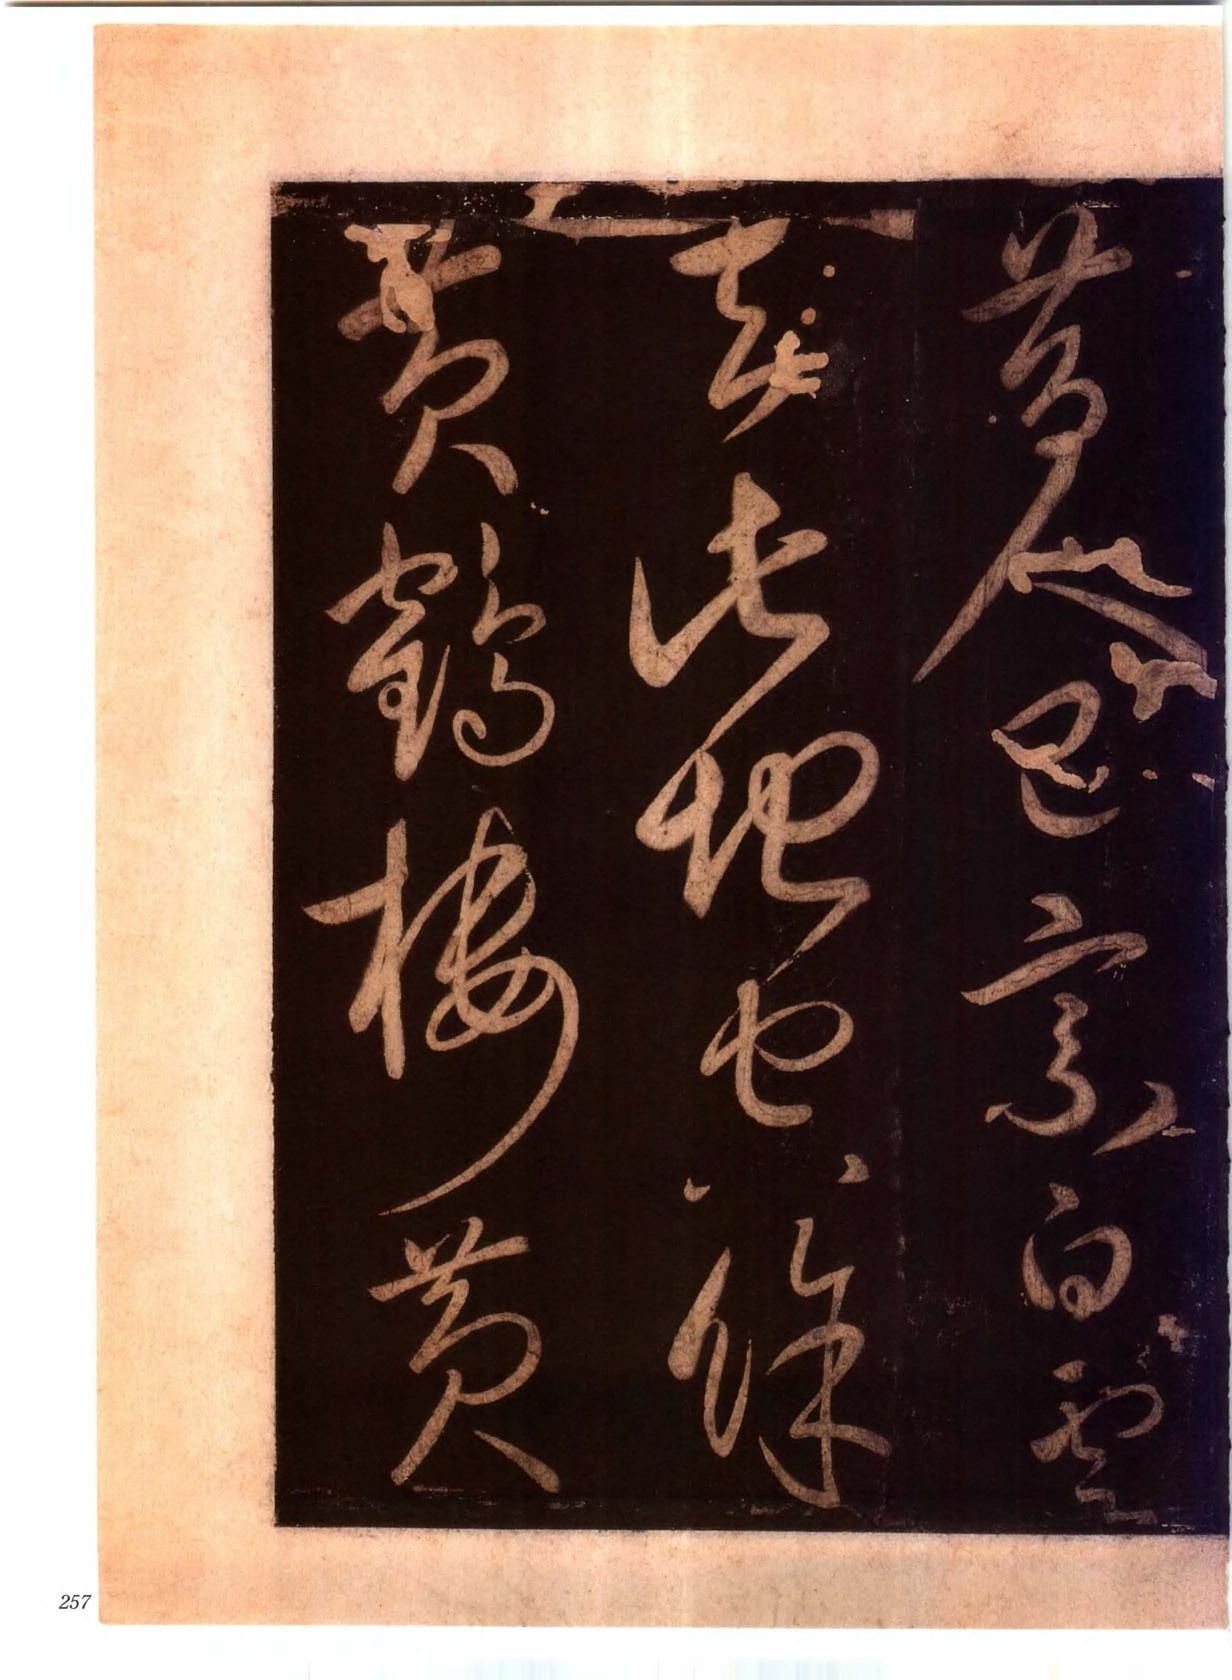 昔人已乘白雲
去此地空餘
黃鶴樓黃
257